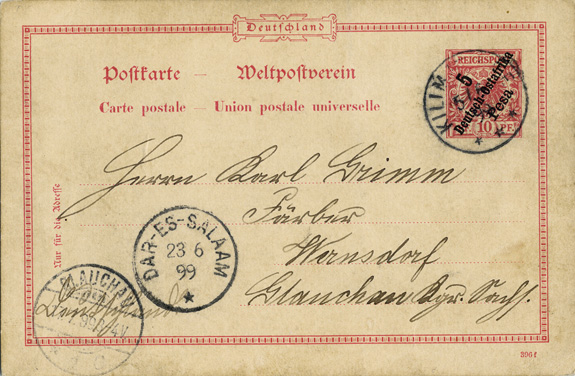 Deutschland
Postkarte — Weltpostverein
Carte postale — Union postale universelle
REICHSPOST
5
Deutsch-Ostafrika
Pesa
10 PF.
KILIM
Herrn Karl Grimm
Färber
Wernsdorf
Glauchau Kgr. Sachs.
Nur für die Adresse
DAR-ES-SALAAM
23 6
99
GLAUCHAU
Deutschland
396f